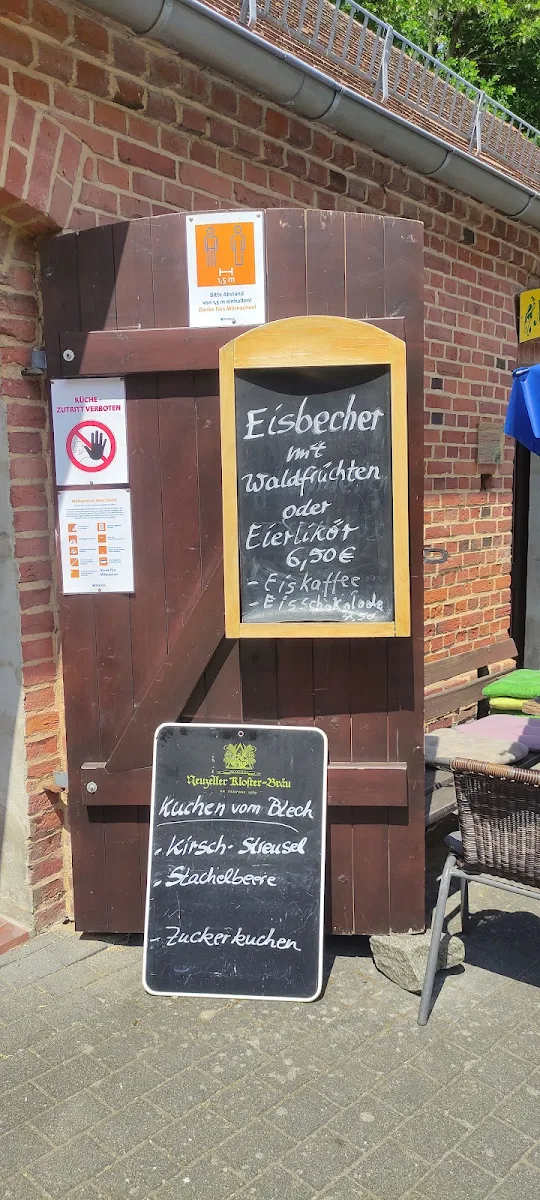 1,5 m
Bitte Abstand
von 1,5 m einhalten!
Danke fürs Mitmachen!
KÜCHE -
ZUTRITT VERBOTEN
Eisbecher
mit
Waldfrüchten
oder
Eierlikör
6,50€
- Eiskaffee
- Eisschokolade
Neuzeller Kloster-Bräu
Kuchen vom Blech
- Kirsch-Streusel
- Stachelbeere
- Zuckerkuchen